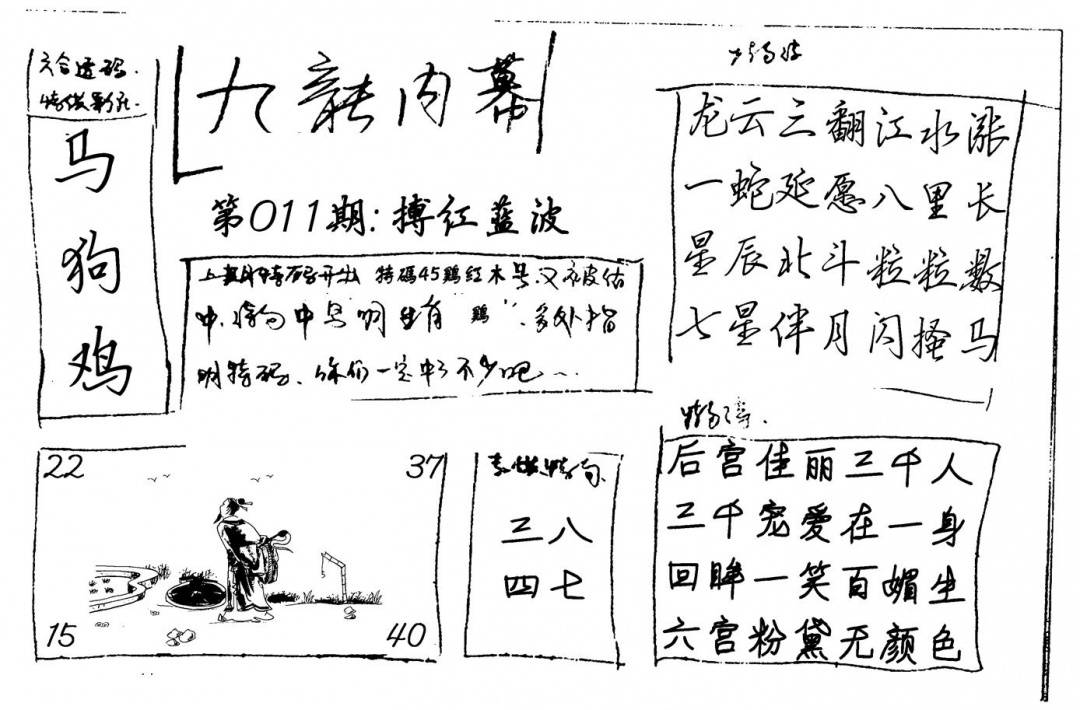 六合透码.
马
狗
鸡
九龍内幕
第011期:搏红蓝波
上期特码开出 特碼45鷄红木号又被估
中.特句中号明生肖“鷄”.多处指
明特码.你们一定中了不少吧~
龙云三翻江水涨
一蛇延愿八里长
星辰北斗粒粒数
七星伴月闪搔马
22
37
15
40
三八
四七
后宫佳丽三千人
三千宠爱在一身
回眸一笑百媚生
六宫粉黛无颜色